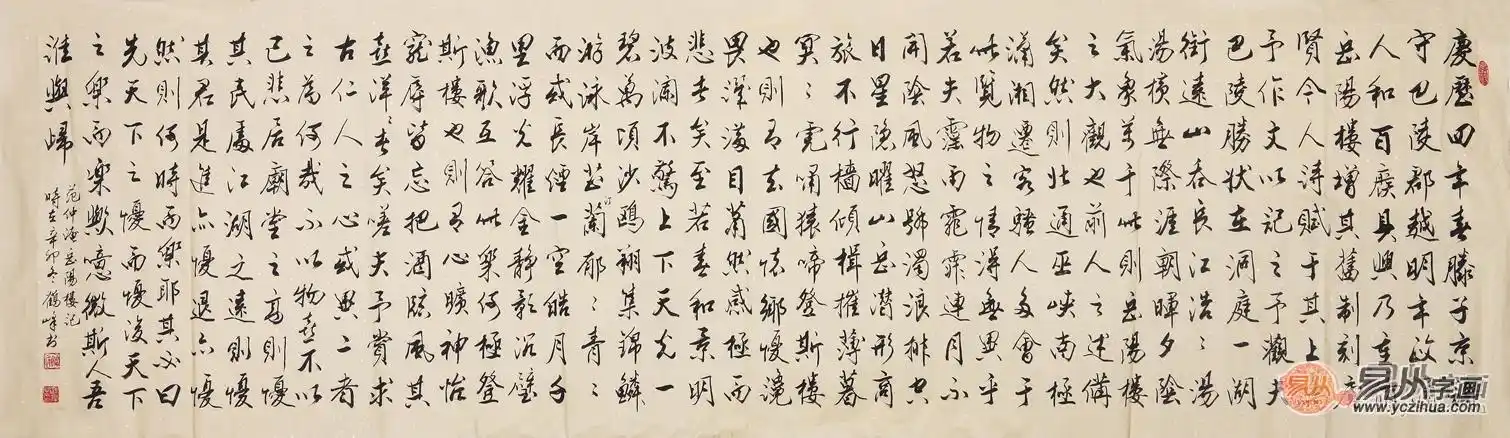 慶歷四年春滕子京
守巴陵郡越明年政
人和百廢具興乃重
岳陽樓增其舊制刻唐
賢今人詩賦于其上
予作文以記之予觀夫
巴陵勝狀在洞庭一湖
銜遠山吞長江浩〻湯
湯橫無際涯朝暉夕陰
氣象萬千此則岳陽樓
之大觀也前人之述備
矣然則北通巫峽南極
瀟湘遷客騷人多會于
此覽物之情得無異乎
若夫霪雨霏霏連月不
開陰風怒號濁浪排空
日星隱曜山岳潛形商
旅不行檣傾楫摧薄暮
冥〻虎嘯猿啼登斯樓
也則有去國懷鄉憂讒
畏譏滿目蕭然感極而
悲者矣至若春和景明
波瀾不驚上下天光一
碧萬頃沙鷗翔集錦鱗
游泳岸芷汀蘭郁〻青〻
而或長煙一空皓月千
里浮光耀金靜影沉璧
漁歌互答此樂何極登
斯樓也則有心曠神怡
寵辱皆忘把酒臨風其
喜洋〻者矣嗟夫予嘗求
古仁人之心或異二者
之為何哉不以物喜不以
己悲居廟堂之高則憂
其民處江湖之遠則憂
其君是進亦憂退亦憂
然則何時而樂耶其必曰
先天下之憂而憂後天下
之樂而樂歟噫微斯人吾
誰與歸
范仲淹岳陽樓記
時在辛卯冬鶴峰書
易从字画
www.yczihua.com